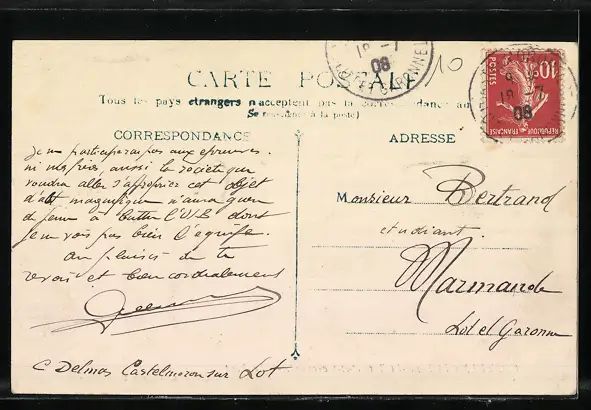 CARTE POSTALE
Tous les pays étrangers n'acceptent pas la correspondance au
Se renseigner à la poste)
CORRESPONDANCE
ADRESSE
10
18 -7
08
LOT ET GARONNE
10c
POSTES
REPUBLIQUE FRANÇAISE
08
Je ne participerai pas aux épreuves.
ni mes frères, aussi la société qui
voudra aller s'approprier cet objet
d'art magnifique n'aura guère
de peine à battre l'U.S. dont
je ne vois pas bien l'équipe.
Au plaisir de te
revoir et bien cordialement
C Delmas Castelmoron sur Lot
Monsieur Bertrand
etudiant.
Marmande
Lot et Garonne